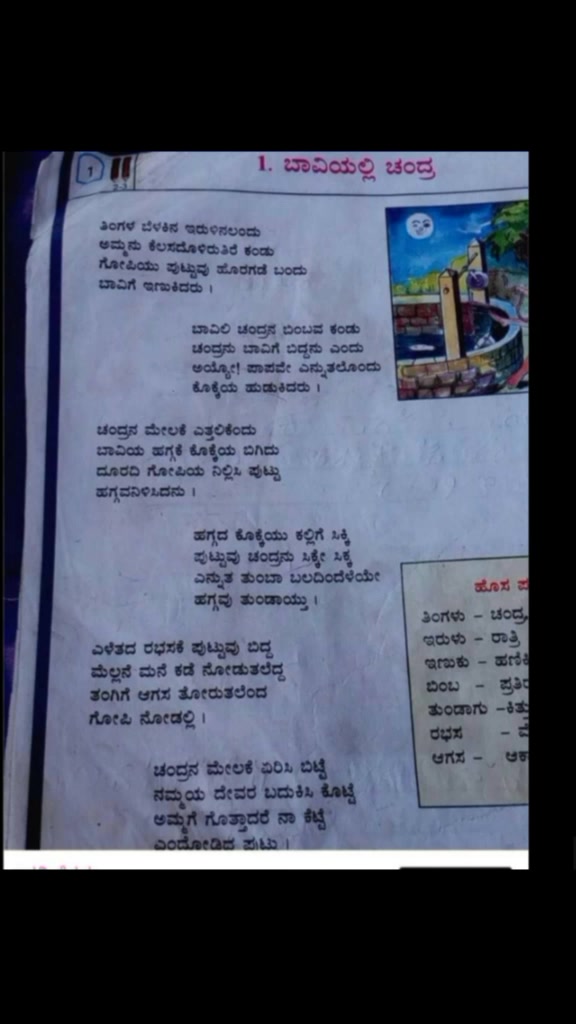 1
1. ಬಾವಿಯಲ್ಲಿ ಚಂದ್ರ
ತಿಂಗಳ ಬೆಳಕಿನ ಇರುಳಿನಲಂದು
ಅಮ್ಮನು ಕೆಲಸದೊಳಿರುತಿರೆ ಕಂಡು
ಗೋಪಿಯು ಪುಟ್ಟುವು ಹೊರಗಡೆ ಬಂದು
ಬಾವಿಗೆ ಇಣುಕಿದರು ।
ಬಾವಿಲಿ ಚಂದ್ರನ ಬಿಂಬವ ಕಂಡು
ಚಂದ್ರನು ಬಾವಿಗೆ ಬಿದ್ದನು ಎಂದು
ಅಯ್ಯೋ! ಪಾಪವೇ ಎನ್ನುತಲೊಂದು
ಕೊಕ್ಕೆಯ ಹುಡುಕಿದರು ।
ಚಂದ್ರನ ಮೇಲಕೆ ಎತ್ತಲಿಕೆಂದು
ಬಾವಿಯ ಹಗ್ಗಕೆ ಕೊಕ್ಕೆಯ ಬಿಗಿದು
ದೂರದಿ ಗೋಪಿಯ ನಿಲ್ಲಿಸಿ ಪುಟ್ಟು
ಹಗ್ಗವನಿಳಿಸಿದನು ।
ಹಗ್ಗದ ಕೊಕ್ಕೆಯು ಕಲ್ಲಿಗೆ ಸಿಕ್ಕಿ
ಪುಟ್ಟುವು ಚಂದ್ರನು ಸಿಕ್ಕೇ ಸಿಕ್ಕ
ಎನ್ನುತ ತುಂಬಾ ಬಲದಿಂದೆಳೆಯೇ
ಹಗ್ಗವು ತುಂಡಾಯ್ತು ।
ಎಳೆತದ ರಭಸಕೆ ಪುಟ್ಟುವು ಬಿದ್ದ
ಮೆಲ್ಲನೆ ಮನೆ ಕಡೆ ನೋಡುತಲೆದ್ದ
ತಂಗಿಗೆ ಆಗಸ ತೋರುತಲೆಂದ
ಗೋಪಿ ನೋಡಲ್ಲಿ ।
ಚಂದ್ರನ ಮೇಲಕೆ ಏರಿಸಿ ಬಿಟ್ಟೆ
ನಮ್ಮಯ ದೇವರ ಬದುಕಿಸಿ ಕೊಟ್ಟೆ
ಅಮ್ಮಗೆ ಗೊತ್ತಾದರೆ ನಾ ಕೆಟ್ಟೆ
ಎಂದೋಡಿದ ಪುಟ್ಟು ।
ಹೊಸ ಪ
ತಿಂಗಳು – ಚಂದ್ರ,
ಇರುಳು – ರಾತ್ರಿ
ಇಣುಕು – ಹಣಿಕಿ
ಬಿಂಬ – ಪ್ರತಿ
ತುಂಡಾಗು – ಕಿತ್ತು
ರಭಸ –
ಆಗಸ – ಆಕಾ